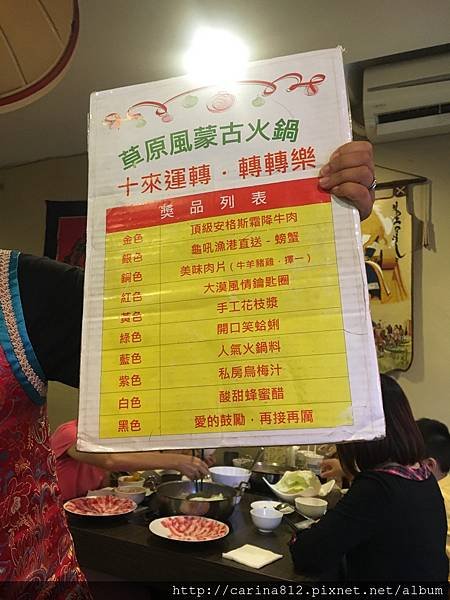 草原風蒙古火鍋
十來運轉．轉轉樂
獎品列表
金色 頂級安格斯霜降牛肉
銀色 龜吼漁港直送-螃蟹
銅色 美味肉片(牛羊豬雞，擇一)
紅色 大漠風情鑰匙圈
黃色 手工花枝漿
綠色 開口笑蛤蜊
藍色 人氣火鍋料
紫色 私房烏梅汁
白色 酸甜蜂蜜醋
黑色 愛的鼓勵．再接再厲
http://carina812.pixnet.net/album